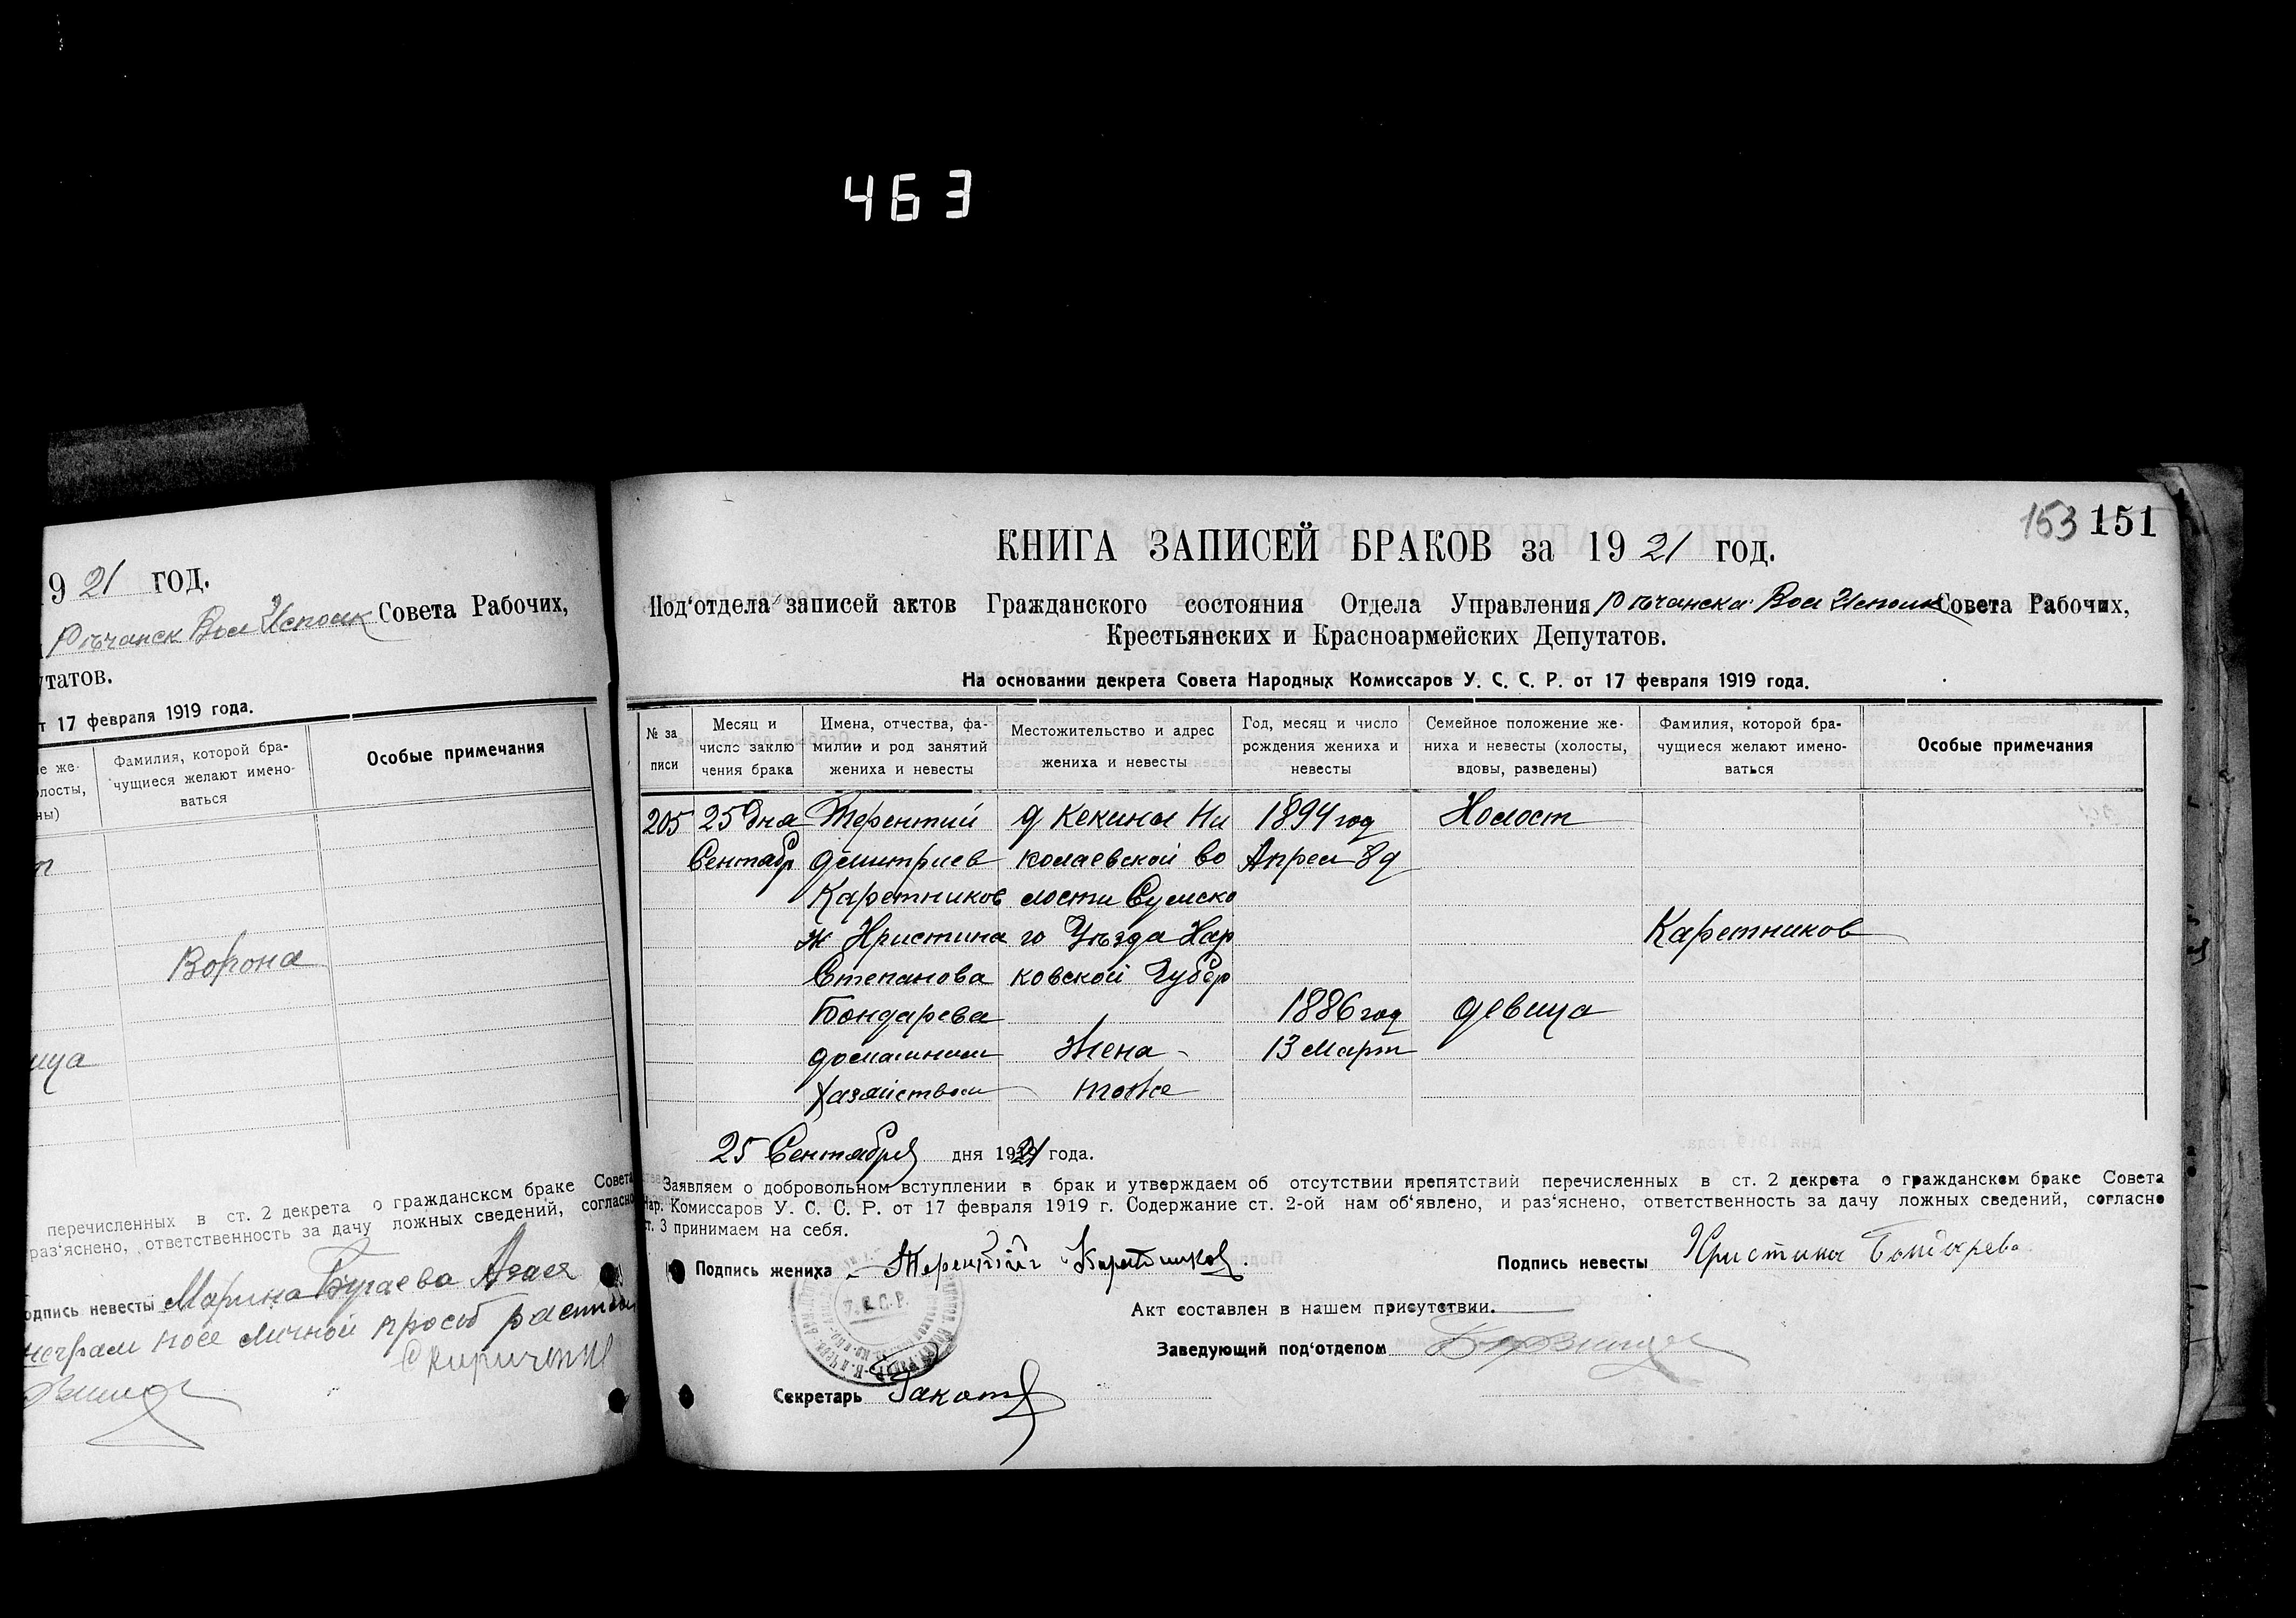 463
9 21 год.
Рѣчанск Вол Исполк Совета Рабочих,
утатов.
т 17 февраля 1919 года.
е же-
олосты,
ны)
Фамилия, которой бра-
чущиеся желают имено-
ваться
Особые примечания
Ворона
ица
перечисленных в ст. 2 декрета о гражданском браке Совета
раз‘яснено, ответственность за дачу ложных сведений, согласно
одпись невесты Марина Бугаева
личной прозб
153 151
КНИГА ЗАПИСЕЙ БРАКОВ за 19 21 год.
Под‘отдела записей актов Гражданского состояния Отдела Управления Рѣчанска Вол Исполк Совета Рабочих,
Крестьянских и Красноармейских Депутатов.
На основании декрета Совета Народных Комиссаров У. С. С. Р. от 17 февраля 1919 года.
№ за
писи
Месяц и
число заклю
чения брака
Имена, отчества, фа-
милии и род занятий
жениха и невесты
Местожительство и адрес
жениха и невесты
Год, месяц и число
рождения жениха и
невесты
Семейное положение же-
ниха и невесты (холосты,
вдовы, разведены)
Фамилия, которой бра-
чущиеся желают имено-
ваться
Особые примечания
205 25 дня Терентий д Кекина Ни 1894 год Холост
Сентябр Дмитриев колаевской во Апрел 8 д
Каретников лости Сумско
ж Христина го Уѣзда Хар Каретников
Степанова ковской Губер
Бондарева 1886 год девица
домашним Жена 13 Март
хазяйством тоже
25 Сентября дня 1921 года.
Заявляем о добровольном вступлении в брак и утверждаем об отсутствии препятствий перечисленных в ст. 2 декрета о гражданском браке Совета
Нар. Комиссаров У. С. С. Р. от 17 февраля 1919 г. Содержание ст. 2-ой нам об‘явлено, и раз‘яснено, ответственность за дачу ложных сведений, согласно
ст. 3 принимаем на себя.
Подпись жениха Терентій Каретников.
Подпись невесты Христина Бондарева
Акт составлен в нашем присутствии.
Заведующий под‘отделом
Секретарь